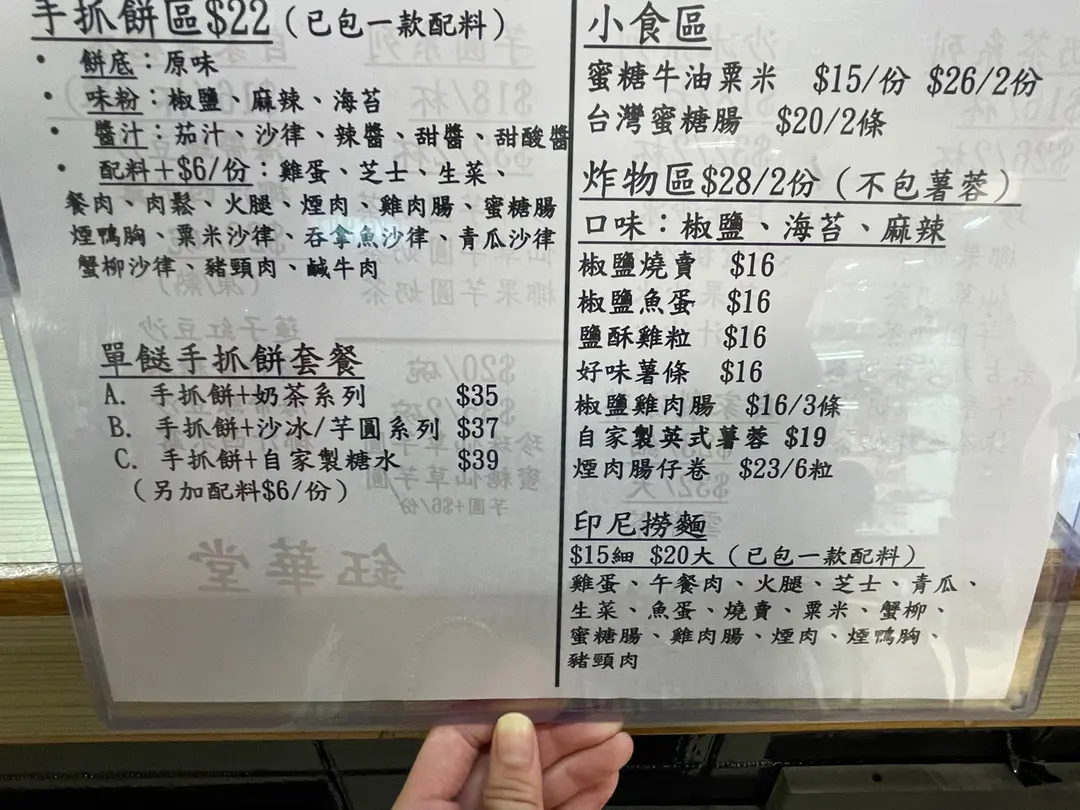 手抓餅區$22（已包一款配料）
• 餅底：原味
• 味粉：椒鹽、麻辣、海苔
• 醬汁：茄汁、沙律、辣醬、甜醬、甜酸醬
• 配料＋$6/份：雞蛋、芝士、生菜、
餐肉、肉鬆、火腿、煙肉、雞肉腸、蜜糖腸
煙鴨胸、粟米沙律、吞拿魚沙律、青瓜沙律
蟹柳沙律、豬頸肉、鹹牛肉
單餸手抓餅套餐
A. 手抓餅+奶茶系列 $35
B. 手抓餅+沙冰/芋圓系列 $37
C. 手抓餅+自家製糖水 $39
（另加配料$6/份）
小食區
蜜糖牛油粟米 $15/份 $26/2份
台灣蜜糖腸 $20/2條
炸物區$28/2份（不包薯蓉）
口味：椒鹽、海苔、麻辣
椒鹽燒賣 $16
椒鹽魚蛋 $16
鹽酥雞粒 $16
好味薯條 $16
椒鹽雞肉腸 $16/3條
自家製英式薯蓉 $19
煙肉腸仔卷 $23/6粒
印尼撈麵
$15細 $20大（已包一款配料）
雞蛋、午餐肉、火腿、芝士、青瓜、
生菜、魚蛋、燒賣、粟米、蟹柳、
蜜糖腸、雞肉腸、煙肉、煙鴨胸、
豬頸肉
鈺華堂